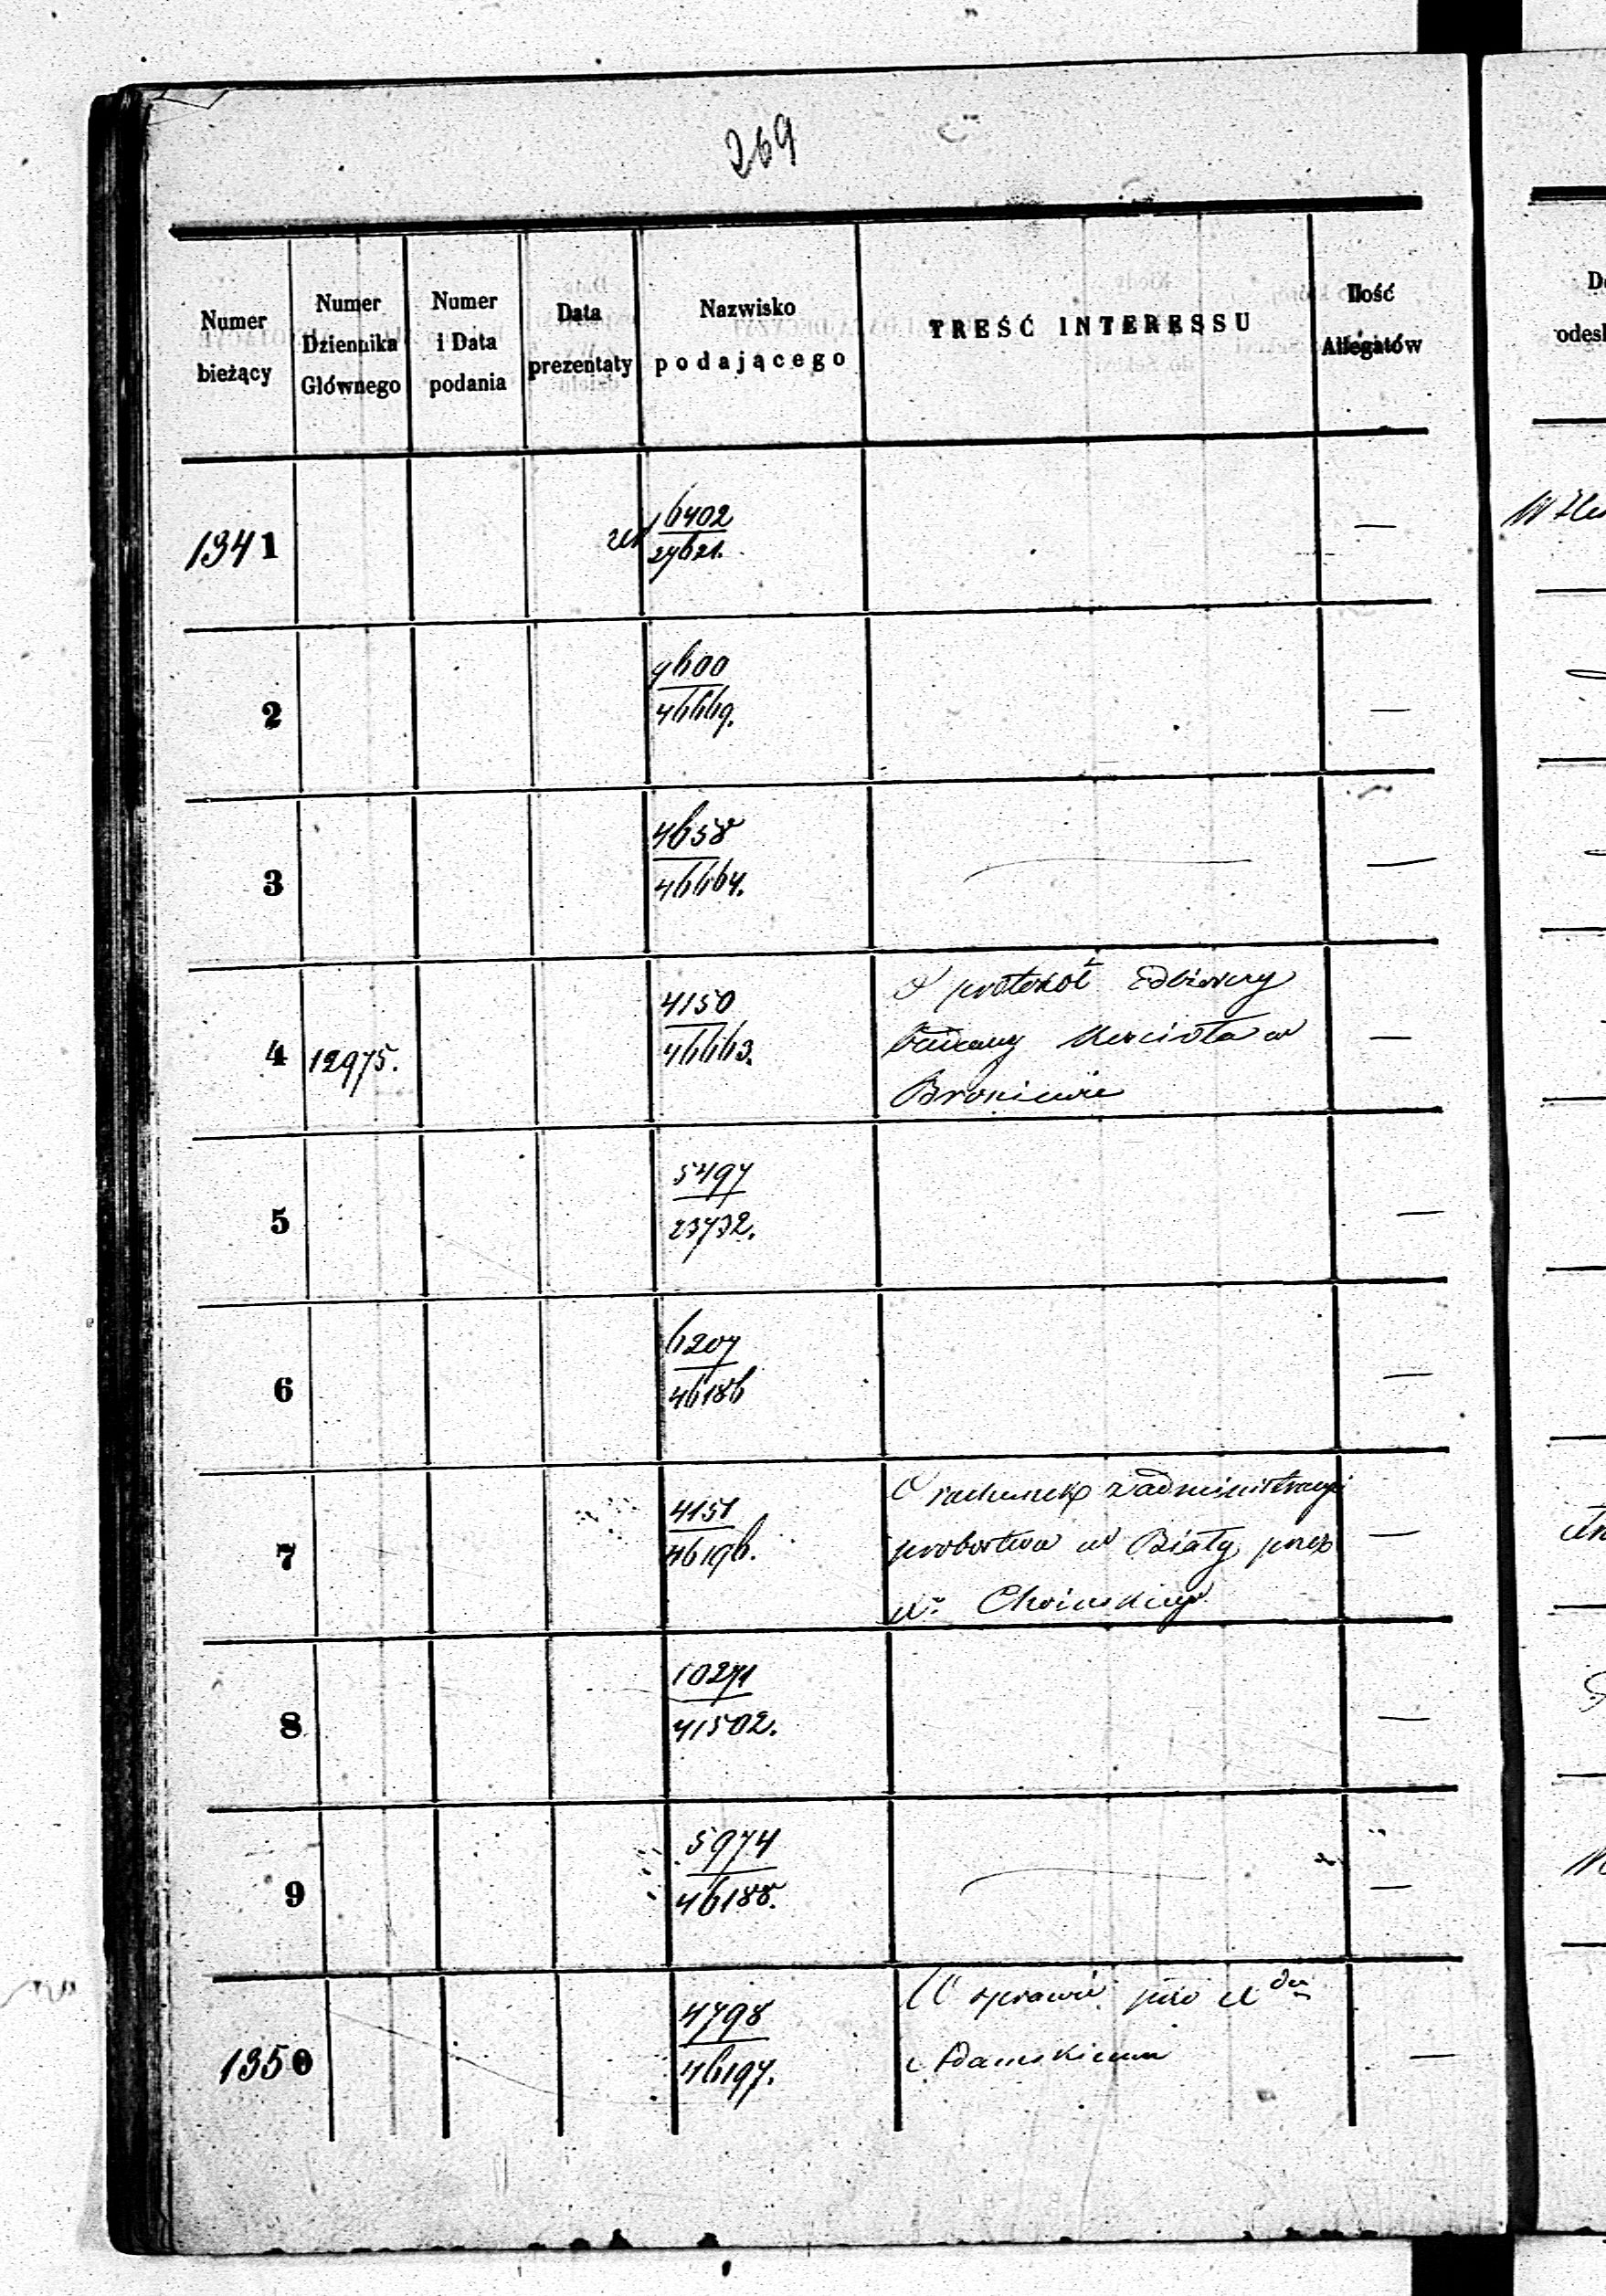 269
Numer bieżący
Numer Dziennika Głównego
Numer i Data podania
Data prezentaty
Nazwisko podającego
TREŚĆ INTERESSU
Ilość Allegatów
1341
6402
27621.
—
2
7600
46669.
—
3
4658
46664.
—
4 12975.
4150
46663.
O protokół Odbiorczy
Kościoła w
Broniewie
—
5
5497
23732.
—
6
6207
46186
—
7
4151
46196.
O rachunek z administracyi
probostwa w Biały przez
X. Choińskiego
—
8
10271
41502.
—
9
5974
46188.
—
1350
4798
46197.
W sprawie pko
Adamskiemu
—